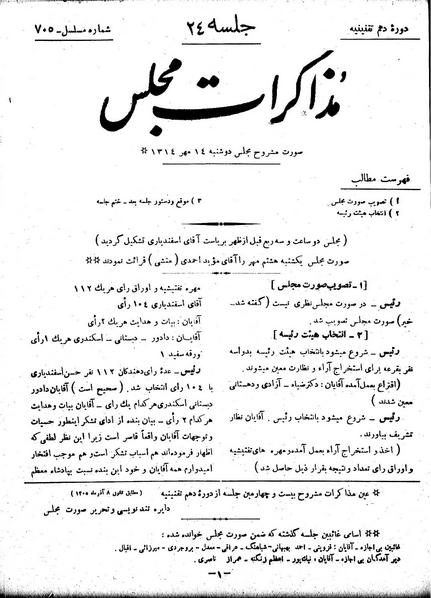 دورهٔ دهم تقنینیه
جلسه ۲۴
شماره مسلسل - ۷۰۵
مذاکرات مجلس
صورت مشروح مجلس دوشنبه ۱۴ مهر ۱۳۱۴ *
فهرست مطالب
۱ ) تصویب صورت مجلس
۲ ) انتخاب هیئت رئیسه
۳ ) موقع ودستور جلسه بعد - ختم جلسه
( مجلس دو ساعت و سه ربع قبل از ظهر بریاست آقای اسفندیاری تشکیل گردید )
صورت مجلس یکشنبه هشتم مهر را آقای مؤید احمدی ( منشی ) قرائت نمودند **
[ ۱ - تصویب صورت مجلس ]
رئیس - در صورت مجلس نظری نیست ( گفته شد.
خیر) صورت مجلس تصویب شد.
[ ۲ - انتخاب هیئت رئیسه ]
رئیس - شروع میشود بانتخاب هیئت رئیسه بدواً سه
نفر بقرعه برای استخراج آراء و نظارت معین میشوند.
(اقتراع بعمل آمده آقایان : دکتر ضیاء - آزادی و دهستانی
معین شدند )
رئیس - شروع میشود بانتخاب رئیس . آقایان نظار
تشریف بیاورند.
( اخذ و استخراج آراء بعمل آمده و مهره های تفتیشیه
و اوراق رای تعداد و نتیجه بقرار ذیل حاصل شد )
مهره تفتیشیه و اوراق رای هریك ۱۱۲
آقای اسفندیاری ۱۰۴ رأی
آقایان : بیات و هدایت هریك ۲ رأی
آقایـان : دادور - دبستانی - اسکندری هریك ۱ رأی
ورقه سفید ۱
رئیس - عدهٔ رای دهندگان ۱۱۲ نفر حسن اسفندیاری
با ۱۰۴ رای انتخاب شد . ( صحیح است ) آقایان دادور
دبستانی اسکندری هر کدام یك رای - آقایان بیات و هدایت
هر کدام ۲ رأی - بیان بنده از ادای تشکر اینطور حسیات
و توجهات آقایان واقعاً قاصر است زیرا این نظر لطفی که
اظهار فرموده اند هم اسباب تشکر است و هم موجب افتخار
امیدوارم همه آقایان و خود این بنده نسبت بپادشاه معظم
* عین مذاکرات مشروح بیست و چهارمین جلسه از دورهٔ دهم تقنینیه (مطابق قانون ۸ آذرماه ۱۳۰۵)
دایره تند نویسی و تحریر صورت مجلس
** اسامی غائبین جلسه گذشته که ضمن صورت مجلس خوانده شده :
غائبین بی اجازه - آقایان : قزوینی - احمد بهبهانی - شباهنگ - عراقی - معدل - بروجردی - میرزائی - اقبال .
دیر آمدگان بی اجازه - آقایان : نیکپور - اعظم زنگنه - همراز ناصری .
- ۱ -